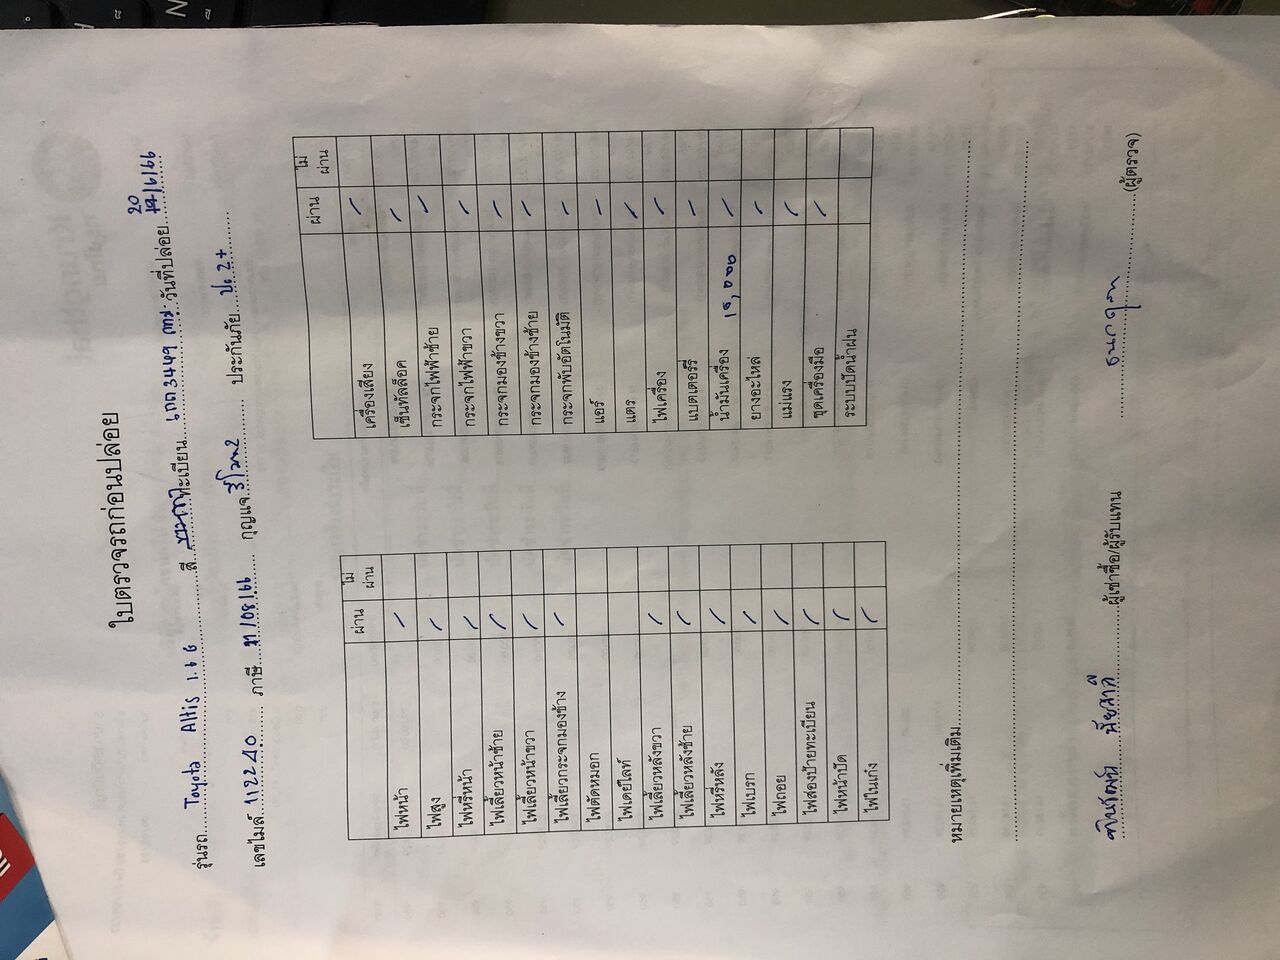 ใบตรวจรถก่อนปล่อย
รุ่นรถ Toyota Altis 1.6 G สี ทะเบียน 3449 กทม. วันที่ปล่อย 20/6/66
เลขไมล์ ภาษี /08/66 กุญแจ ประกันภัย ป. 2+
ผ่าน ไม่ผ่าน
ไฟหน้า /
ไฟสูง /
ไฟหรี่หน้า /
ไฟเลี้ยวหน้าซ้าย /
ไฟเลี้ยวหน้าขวา /
ไฟเลี้ยวกระจกมองข้าง /
ไฟตัดหมอก
ไฟเดย์ไลท์
ไฟเลี้ยวหลังขวา /
ไฟเลี้ยวหลังซ้าย /
ไฟหรี่หลัง /
ไฟเบรก /
ไฟถอย /
ไฟส่องป้ายทะเบียน /
ไฟหน้าปัด /
ไฟในเก๋ง /
ผ่าน ไม่ผ่าน
เครื่องเสียง /
เซ็นทัลล็อค /
กระจกไฟฟ้าซ้าย /
กระจกไฟฟ้าขวา /
กระจกมองข้างขวา /
กระจกมองข้างซ้าย /
กระจกพับอัตโนมัติ /
แอร์ /
แตร /
ไฟเครื่อง /
แบตเตอร์รี่ /
น้ำมันเครื่อง /
ยางอะไหล่ /
แม่แรง /
ชุดเครื่องมือ /
ระบบปัดน้ำฝน
หมายเหตุเพิ่มเติม
ผู้เช่าซื้อ/ผู้รับแทน (ผู้ตรวจ)